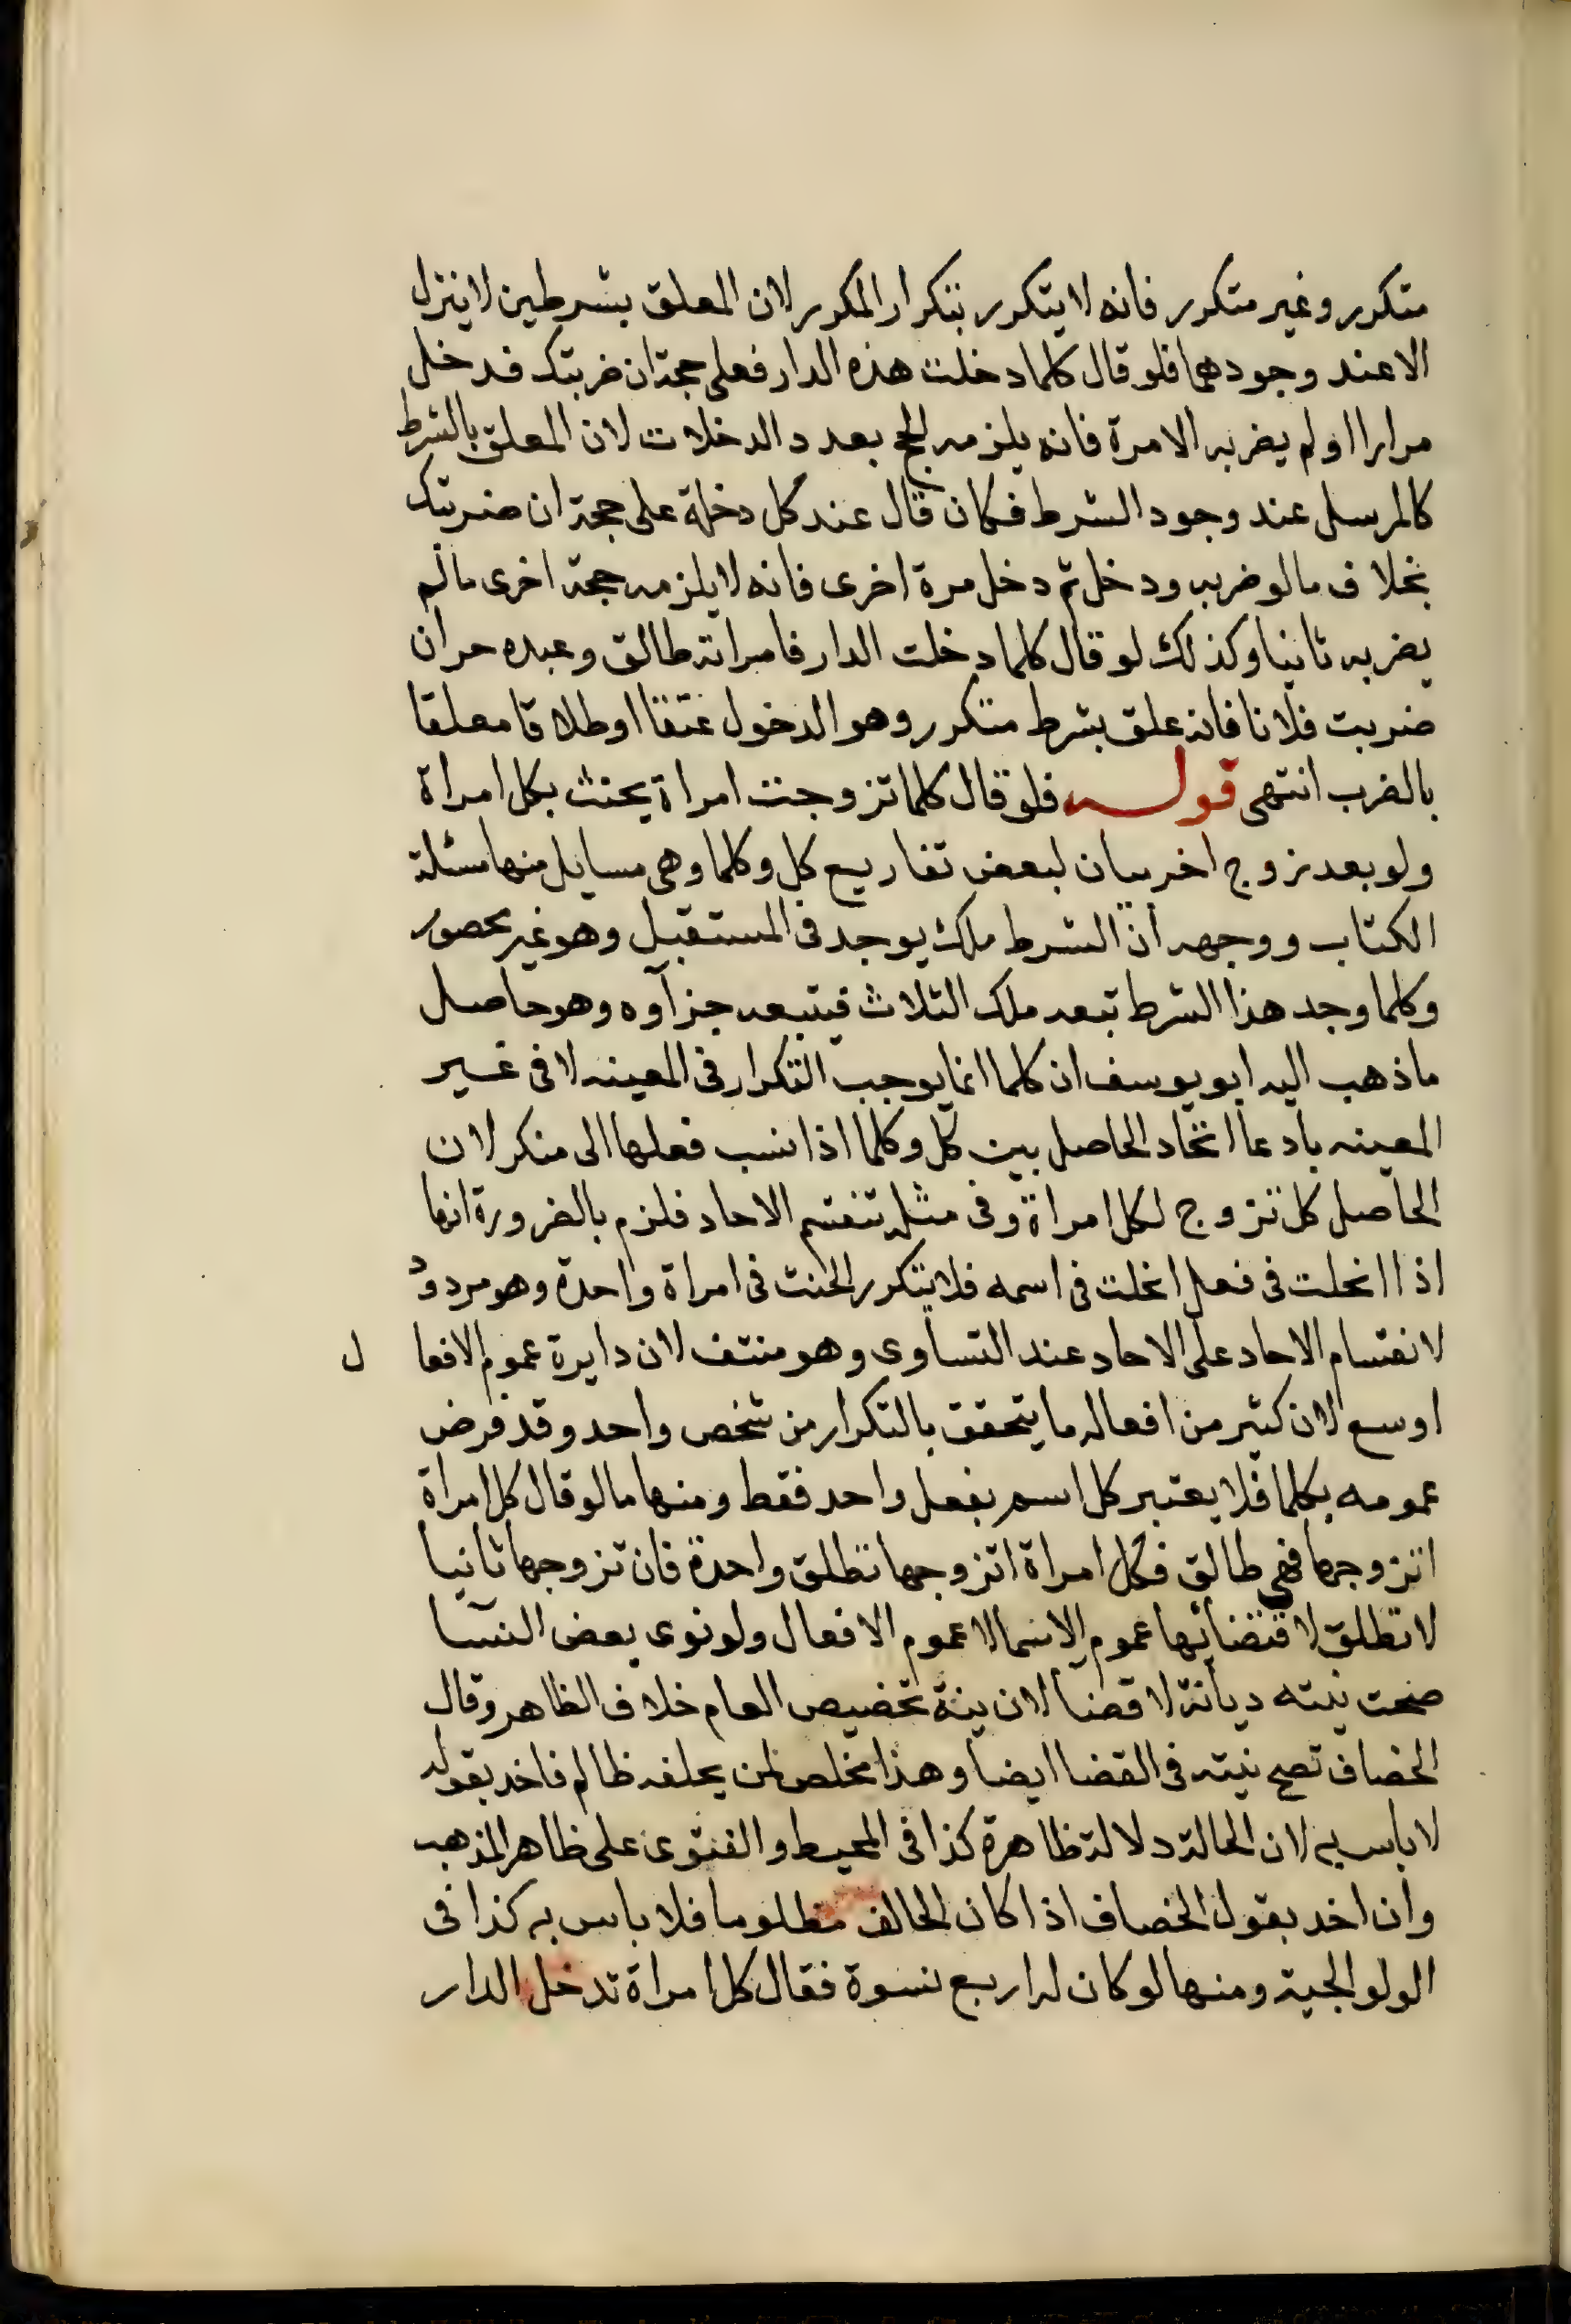 متكرر وغير متكرر فانه لا يتكرر بتكرار المكرر لان المعلق بشرطين لا ينزل
الا عند وجودهما فلو قال كلما دخلت هذه الدار فعلى حجة ان ضربتك فدخل
مرارا او لم يضربه الا مرة فانه يلزمه الحج بعدد الدخلات لان المعلق بالشرط
كالمرسل عند وجود الشرط فكان قال عند كل دخلة على حجة ان ضربتك
بخلاف ما لو ضربه ودخل ثم دخل مرة اخرى فانه لا يلزمه حجة اخرى ما لم
يضربه ثانيا وكذلك لو قال كلما دخلت الدار فامراته طالق وعبده حر ان
ضربت فلانا فانه علق بشرط متكرر وهو الدخول عتقا او طلاقا معلقا
بالضرب انتهى قوله فلو قال كلما تزوجت امراة يحنث بكل امراة
ولو بعد زوج اخر بيان لبعض تفاريع كل وكلما وهى مسايل منها مسئلة
الكتاب ووجهه ان الشرط ملك يوجد فى المستقبل وهو غير محصور
وكلما وجد هذا الشرط تبعه ملك الثلاث فيتبعه جزآوه وهو حاصل
ما ذهب اليه ابو يوسف ان كلما انما يوجب التكرار فى المعينه لا فى غير
المعينه بادعا اتحاد الحاصل بين كل وكلما اذا نسب فعلها الى منكر لان
الحاصل كل تزوج لكل امراة وفى مثله تنقسم الاحاد فلزم بالضرورة انها
اذا انحلت فى فعل انحلت فى اسمه فلا يتكرر الحنث فى امراة واحدة وهو مردود
لانقسام الاحاد على الاحاد عند التساوى وهو منتف لان دايرة عموم الافعا ل
اوسع لان كثير من افعاله ما يتحقق بالتكرار من شخص واحد وقد فرض
عمومه بكلما فلا يعتبر كل اسم بفعل واحد فقط ومنها ما لو قال كل امراة
اتزوجها فهى طالق فكل امراة اتزوجها تطلق واحدة فان تزوجها ثانيا
لا تطلق لاقتضائها عموم الاسما لا عموم الافعال ولو نوى بعض النسآ
صحت نيته ديانة لا قضآ لان نية تخصيص العام خلاف الظاهر وقال
الخصاف تصح نيته فى القضا ايضا وهذا مخلص لمن يحلفه ظالم فاخد بقوله
لا باس به لان الحالة دلالة ظاهرة كذا فى المحيط والفتوى على ظاهر المذهب
وان اخد بقول الخصاف اذا كان الحالف مظلوما فلا باس به كذا فى
الولوالجية ومنها لو كان له اربع نسوة فقال كل امراة تدخل الدار